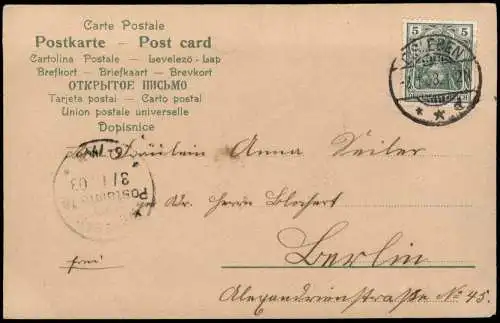 Carte Postale
Postkarte – Post card
Cartolina Postale – Levelező-Lap
Brefkort – Briefkaart – Brevkort
ОТКРЫТОЕ ПИСЬМО
Tarjeta postal – Carto postal
Union postale universelle
Dopisnice
5 5
EISLEBEN
Fräulein Anna Seiler
Herrn Blochert
Berlin
frei
Alexandrienstraße No 45.
3/1 03